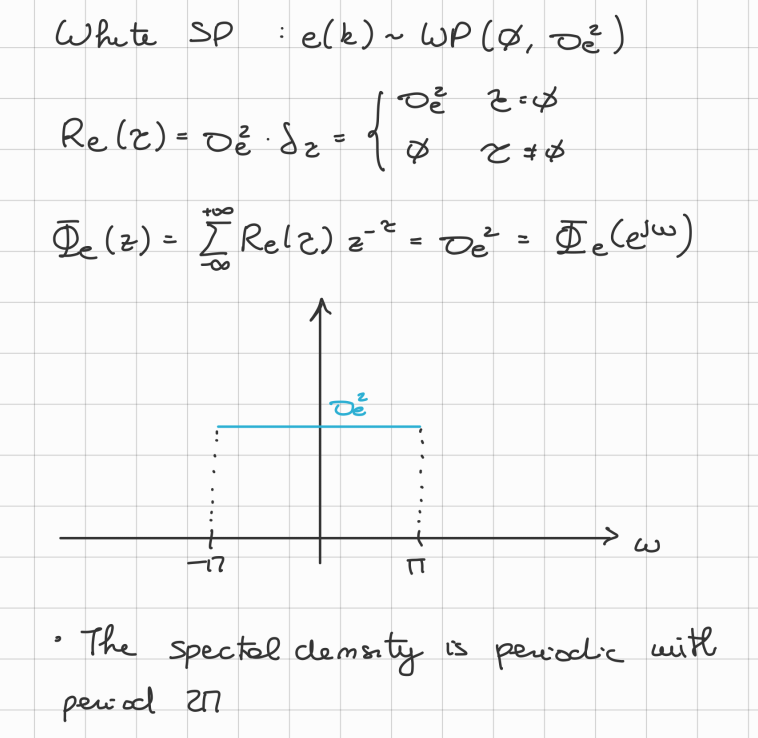 White SP : e(k) ~ WP(∅, σₑ²)
Rₑ(τ) = σₑ² · δτ = { σₑ² τ = ∅
∅ τ ≠ ∅
Φₑ(z) = ∑_{-∞}^{+∞} Rₑ(τ) z^{-τ} = σₑ² = Φₑ(e^{jω})
σₑ²
ω
-π π
• The spectal density is periodic with
period 2π